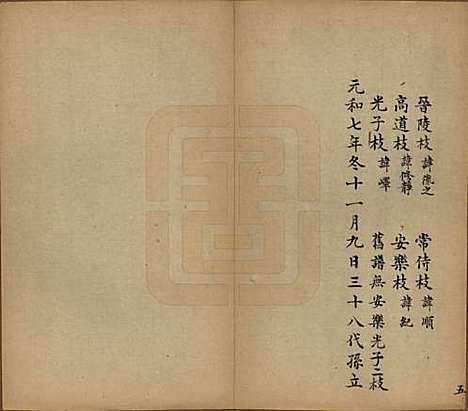 晉陵枝諱慮之 常侍枝諱順
高道枝諱修靜 安樂枝諱紀
光子枝諱嶧 舊譜無安樂光子二枝
元和七年冬十一月九日三十八代孫立
五